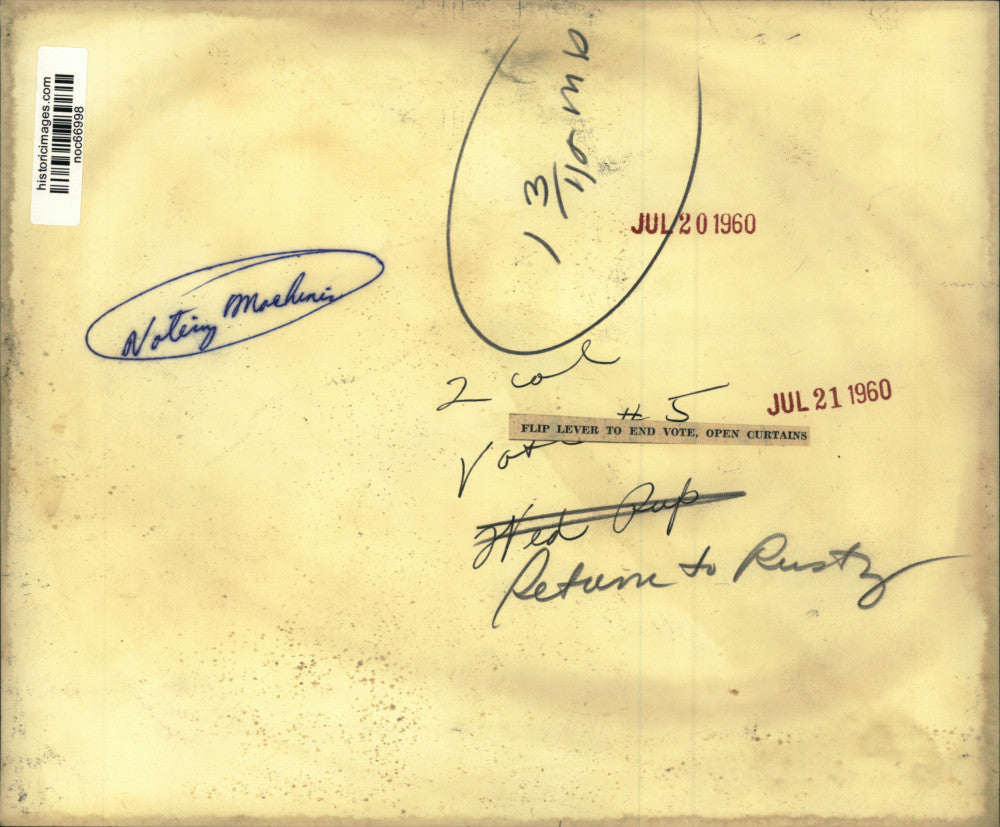 historicimages.com
noc66998
JUL 20 1960
Voting Machines
2 col
JUL 21 1960
# 5
FLIP LEVER TO END VOTE, OPEN CURTAINS
Vote
Wed Pup
Return to Rusty